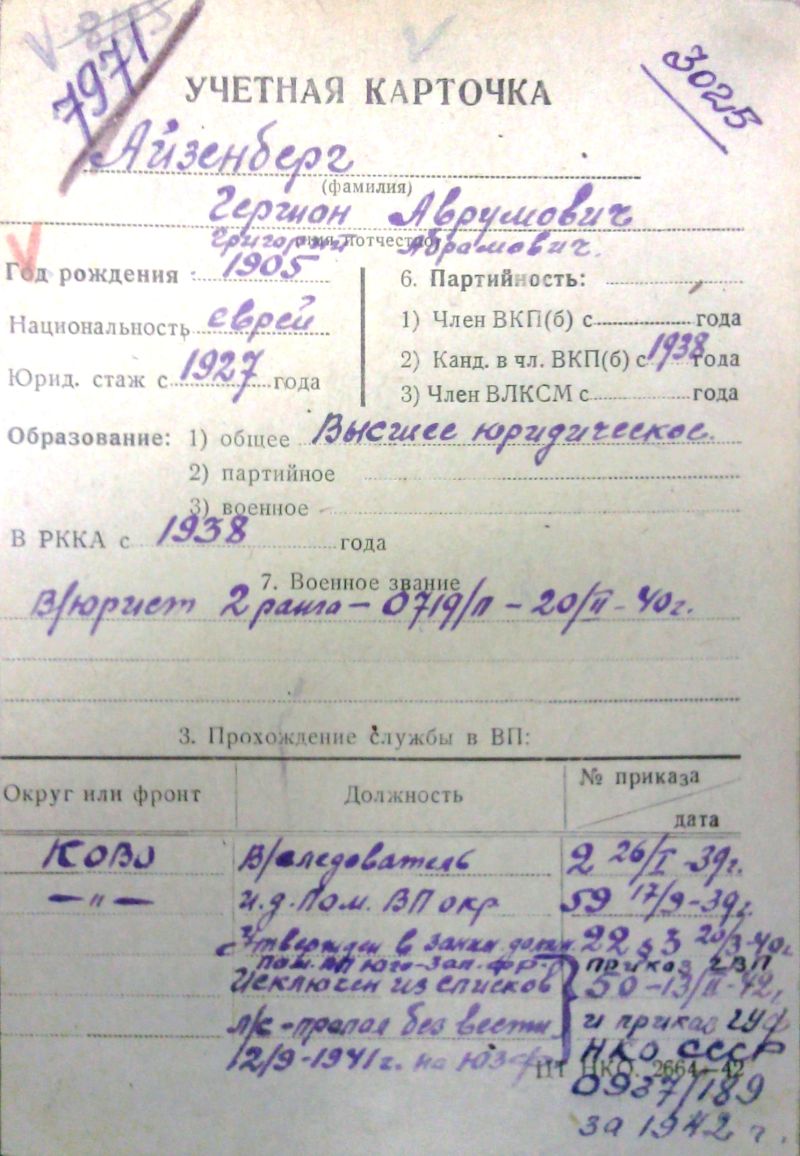 7971
3025
УЧЕТНАЯ КАРТОЧКА
Айзенберг
(фамилия)
Гершон Аврумович
(имя и отчество)
Григорий Абрамович.
Год рождения 1905
Национальность еврей
Юрид. стаж с 1927 года
6. Партийность:
1) Член ВКП(б) с года
2) Канд. в чл. ВКП(б) с 1938 года
3) Член ВЛКСМ с года
Образование: 1) общее Высшее юридическое.
2) партийное
3) военное
В РККА с 1938 года
7. Военное звание
В/юрист 2 ранга – 0719/п – 20/II - 40г.
3. Прохождение службы в ВП:
Округ или фронт Должность № приказа дата
КОВО В/следователь 2 26/I -39г.
— " — и.д. Пом. ВП окр 59 17/9-39г.
Утвержден в заним. долж. 22 § 3 20/3-40г.
Пом. ВП Юго-Зап. фр-т приказ ГВП
Исключен из списков 50-13/II-42,
л/с - пропал без вести и приказ ГУФ
12/9-1941г. на ЮЗФр НКО СССР
ЦТ НКО. 2664—42
0937/189
за 1942 г.